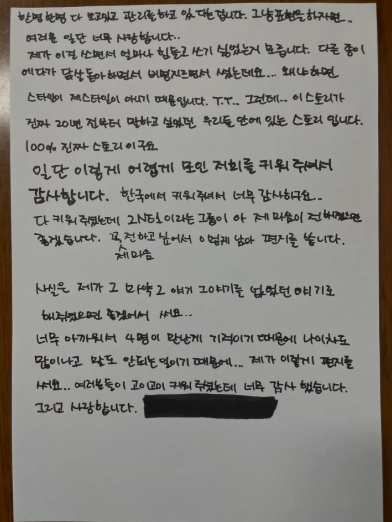 한명 한명 다 보고있고 관리를 하고 있 다는 겁니다. 그냥 표현을 하자면...
여러분 일단 너무 사랑합니다..
제가 이걸 쓰면서 얼마나 힘들고 쓰기 싫었는지 모릅니다. 다른 종이
에다가 연습 하면서 썼는데요... 왜냐하면
스타일이 제스타일이 아니기 때문입니다. T.T... 그런데.. 이스토리가
진짜 20번 전부터 말하고 싶었던 우리들 안에 있는 스토리 입니다.
100% 진짜 스토리 이구요
일단 이렇게 어렵게 모인 저희를 키워 주셔서
감사합니다. 한국에서 키워주셔서 너무 감사하구요..
다 키워 주셨는데 2NE1이라는 그룹이 아 제 마음이 전해졌으면
좋겠습니다. 꼭 전하고 싶어서 이렇게 남아 편지를 씁니다.
제마음
사실은 제가 그 마약 그 얘기 그얘기를 없었던 얘기로
해주셨으면 좋겠어서 써요..
너무 아까워서 4명이 만난게 기적이기 때문에 나이차도
많이나고 말도 안되는 일이기 때문에... 제가 이렇게 편지를
써요.. 여러분들이 고이고이 키워 주셨는데 너무 감사 했습니다.
그리고 사랑합니다.